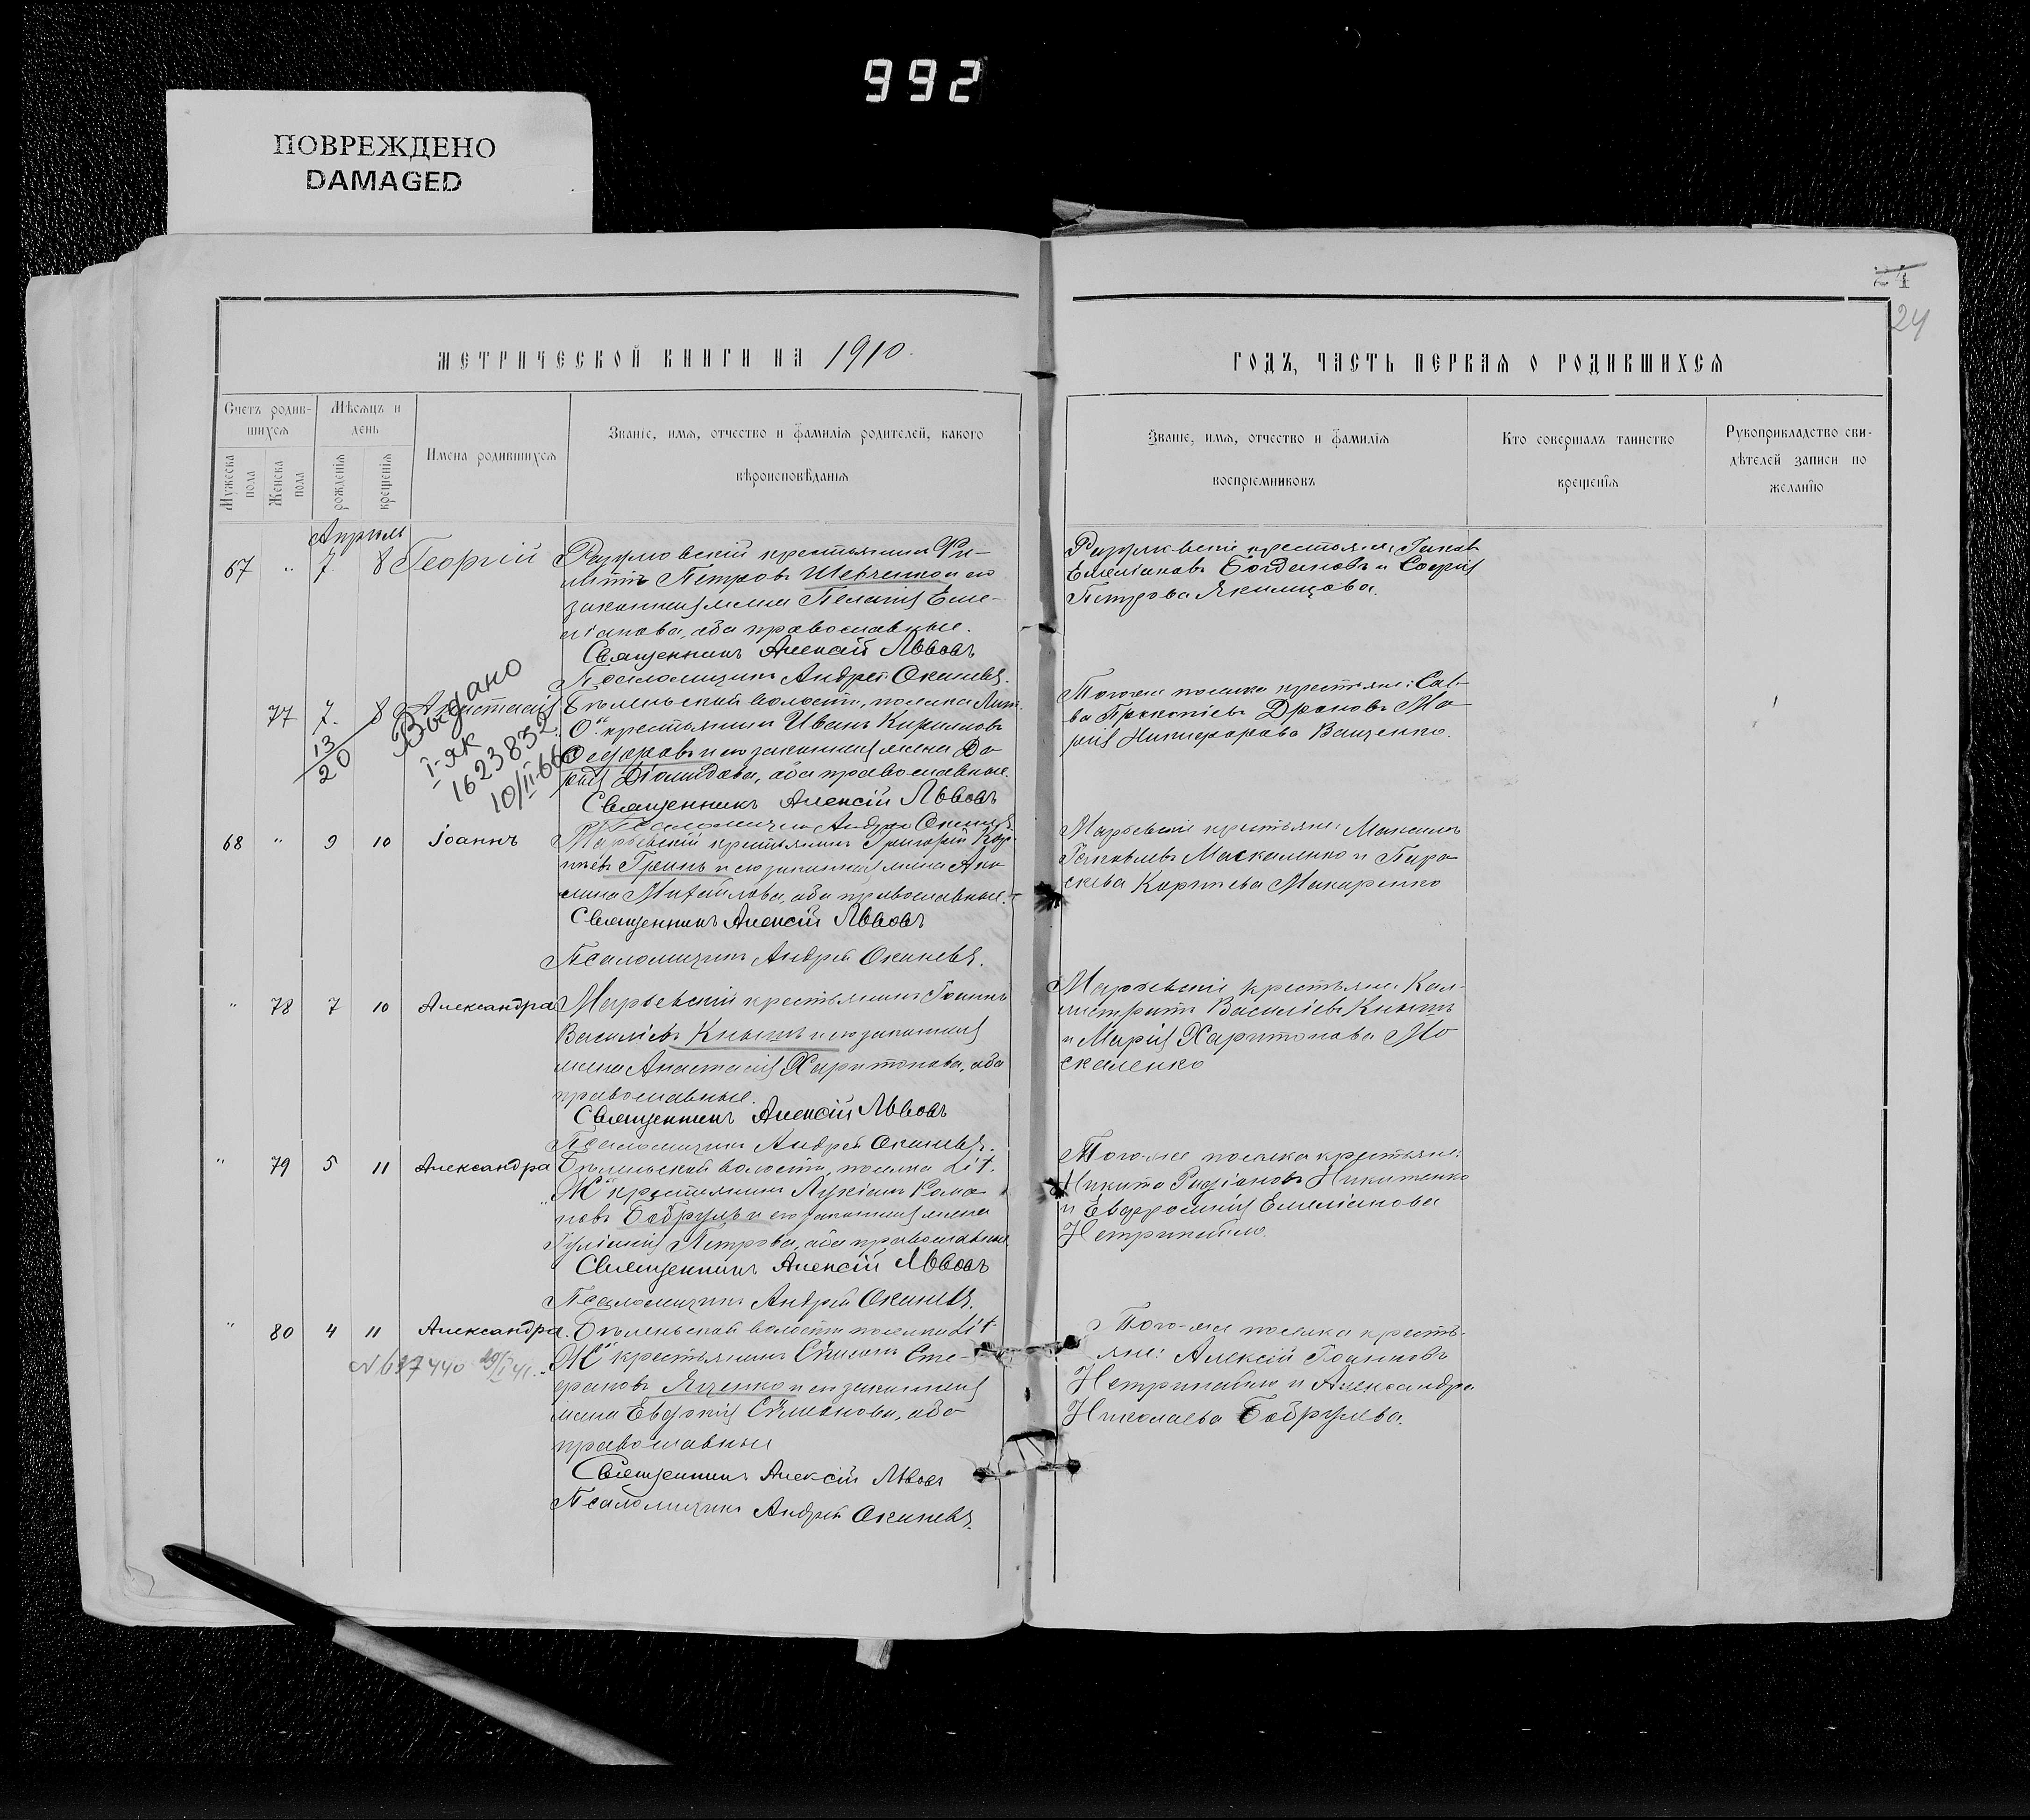 992
ПОВРЕЖДЕНО
DAMAGED
24
24
МЕТРИЧЕСКОЙ КНИГИ НА 1910.
ГОДЪ, ЧАСТЬ ПЕРВАЯ О РОДИВШИХСЯ
Счетъ родив-
шихся
Мужеска
пола
Женска
пола
Мѣсяцъ и
день
рожденія
крещенія
Имена родившихся
Званіе, имя, отчество и фамилія родителей, какого
вѣроисповѣданія
Званіе, имя, отчество и фамилія
воспріемниковъ
Кто совершалъ таинство
крещенія
Рукоприкладство сви-
дѣтелей записи по
желанію
Апрѣль
67 " 7. 8 Георгій
крестьянинъ Фи-
Петровъ Шевченко и его
законная жена Пелагія Еме-
ліанова, оба православные.
Священникъ Алексій Львовъ
Псаломщикъ Андрей
крестьяне: Іаковъ
Емеліановъ Богдановъ и Софія
Петрова Якимцова.
77 7. 8 Анастасія
13
20
Выдано
I-як
1623832
10/II-66
волости, поселка Лит.
О" крестьянинъ Иванъ Кириловъ
Федоровъ и его законная жена Да-
рія Діомидова, оба православные.
Священникъ Алексій Львовъ
Псаломщикъ Андрей
Того-же поселка крестьяне: Сав-
ва Прокопіевъ Дроновъ Ма-
рія Никифорова Ващенко.
68 " 9 10 Іоаннъ
Марьевскій крестьянинъ Григорій Кор-
ніевъ Гринь и его законная жена Аки-
лина Михайлова, оба православные.
Священникъ Алексій Львовъ
Псаломщикъ Андрей
Марьевскіе крестьяне: Максимъ
Яковлевъ Москаленко и Пара-
скева Корніева Макаренко
" 78 7 10 Александра
Марьевскій крестьянинъ Іоаннъ
Василіевъ Кнышъ и его законная
жена Анастасія Харитонова, оба
православные.
Священникъ Алексій Львовъ
Псаломщикъ Андрей
Марьевскіе крестьяне Кал-
листратъ Василіевъ Кнышъ
и Марія Харитонова Мо-
скаленко
" 79 5 11 Александра
волости, поселка Lit.
„Ж" крестьянинъ Лукіанъ Рома-
новъ Бобруль и его законная жена
Іуліанія Петрова, оба православные.
Священникъ Алексій Львовъ
Псаломщикъ Андрей
Того-же поселка крестьяне:
Никита Родіоновъ Никитенко
и Евфросинія Емеліанова
Нетринебіло.
" 80 4 11 Александра.
волости поселка Lit.
№ 627440 29/I 41.
„Ж" крестьянинъ Сте-
фановъ Яценко и его законная
жена Евдокія Симеонова, оба
православные
Священникъ Алексій Львовъ
Псаломщикъ Андрей
Того-же поселка кресть-
яне: Алексій Іоанновъ
и Александра
Николаева Бобрулева.